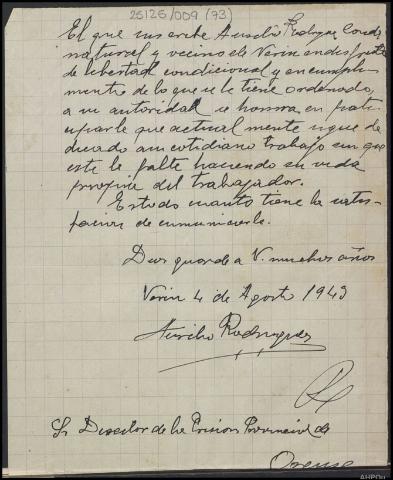 25126/009 (73)
El que suscribe Aurelio Rodriguez Conde
natural y vecino de Verin en disfrute
de libertad condicional y en cumpli-
miento de lo que se le tiene ordenado,
a su autoridad se honra en parti-
ciparle que actualmente sigue de
dicado a su cotidiano trabajo sin que
este le falte haciendo su vida
propia del trabajador.
Es todo cuanto tiene la satis-
facion de comunicarle.
Dios guarde a V. muchos años
Verin 4 de Agosto 1943
Aurelio Rodriguez
Sr Director de la Prision Provincial de
Orense
AHPOu